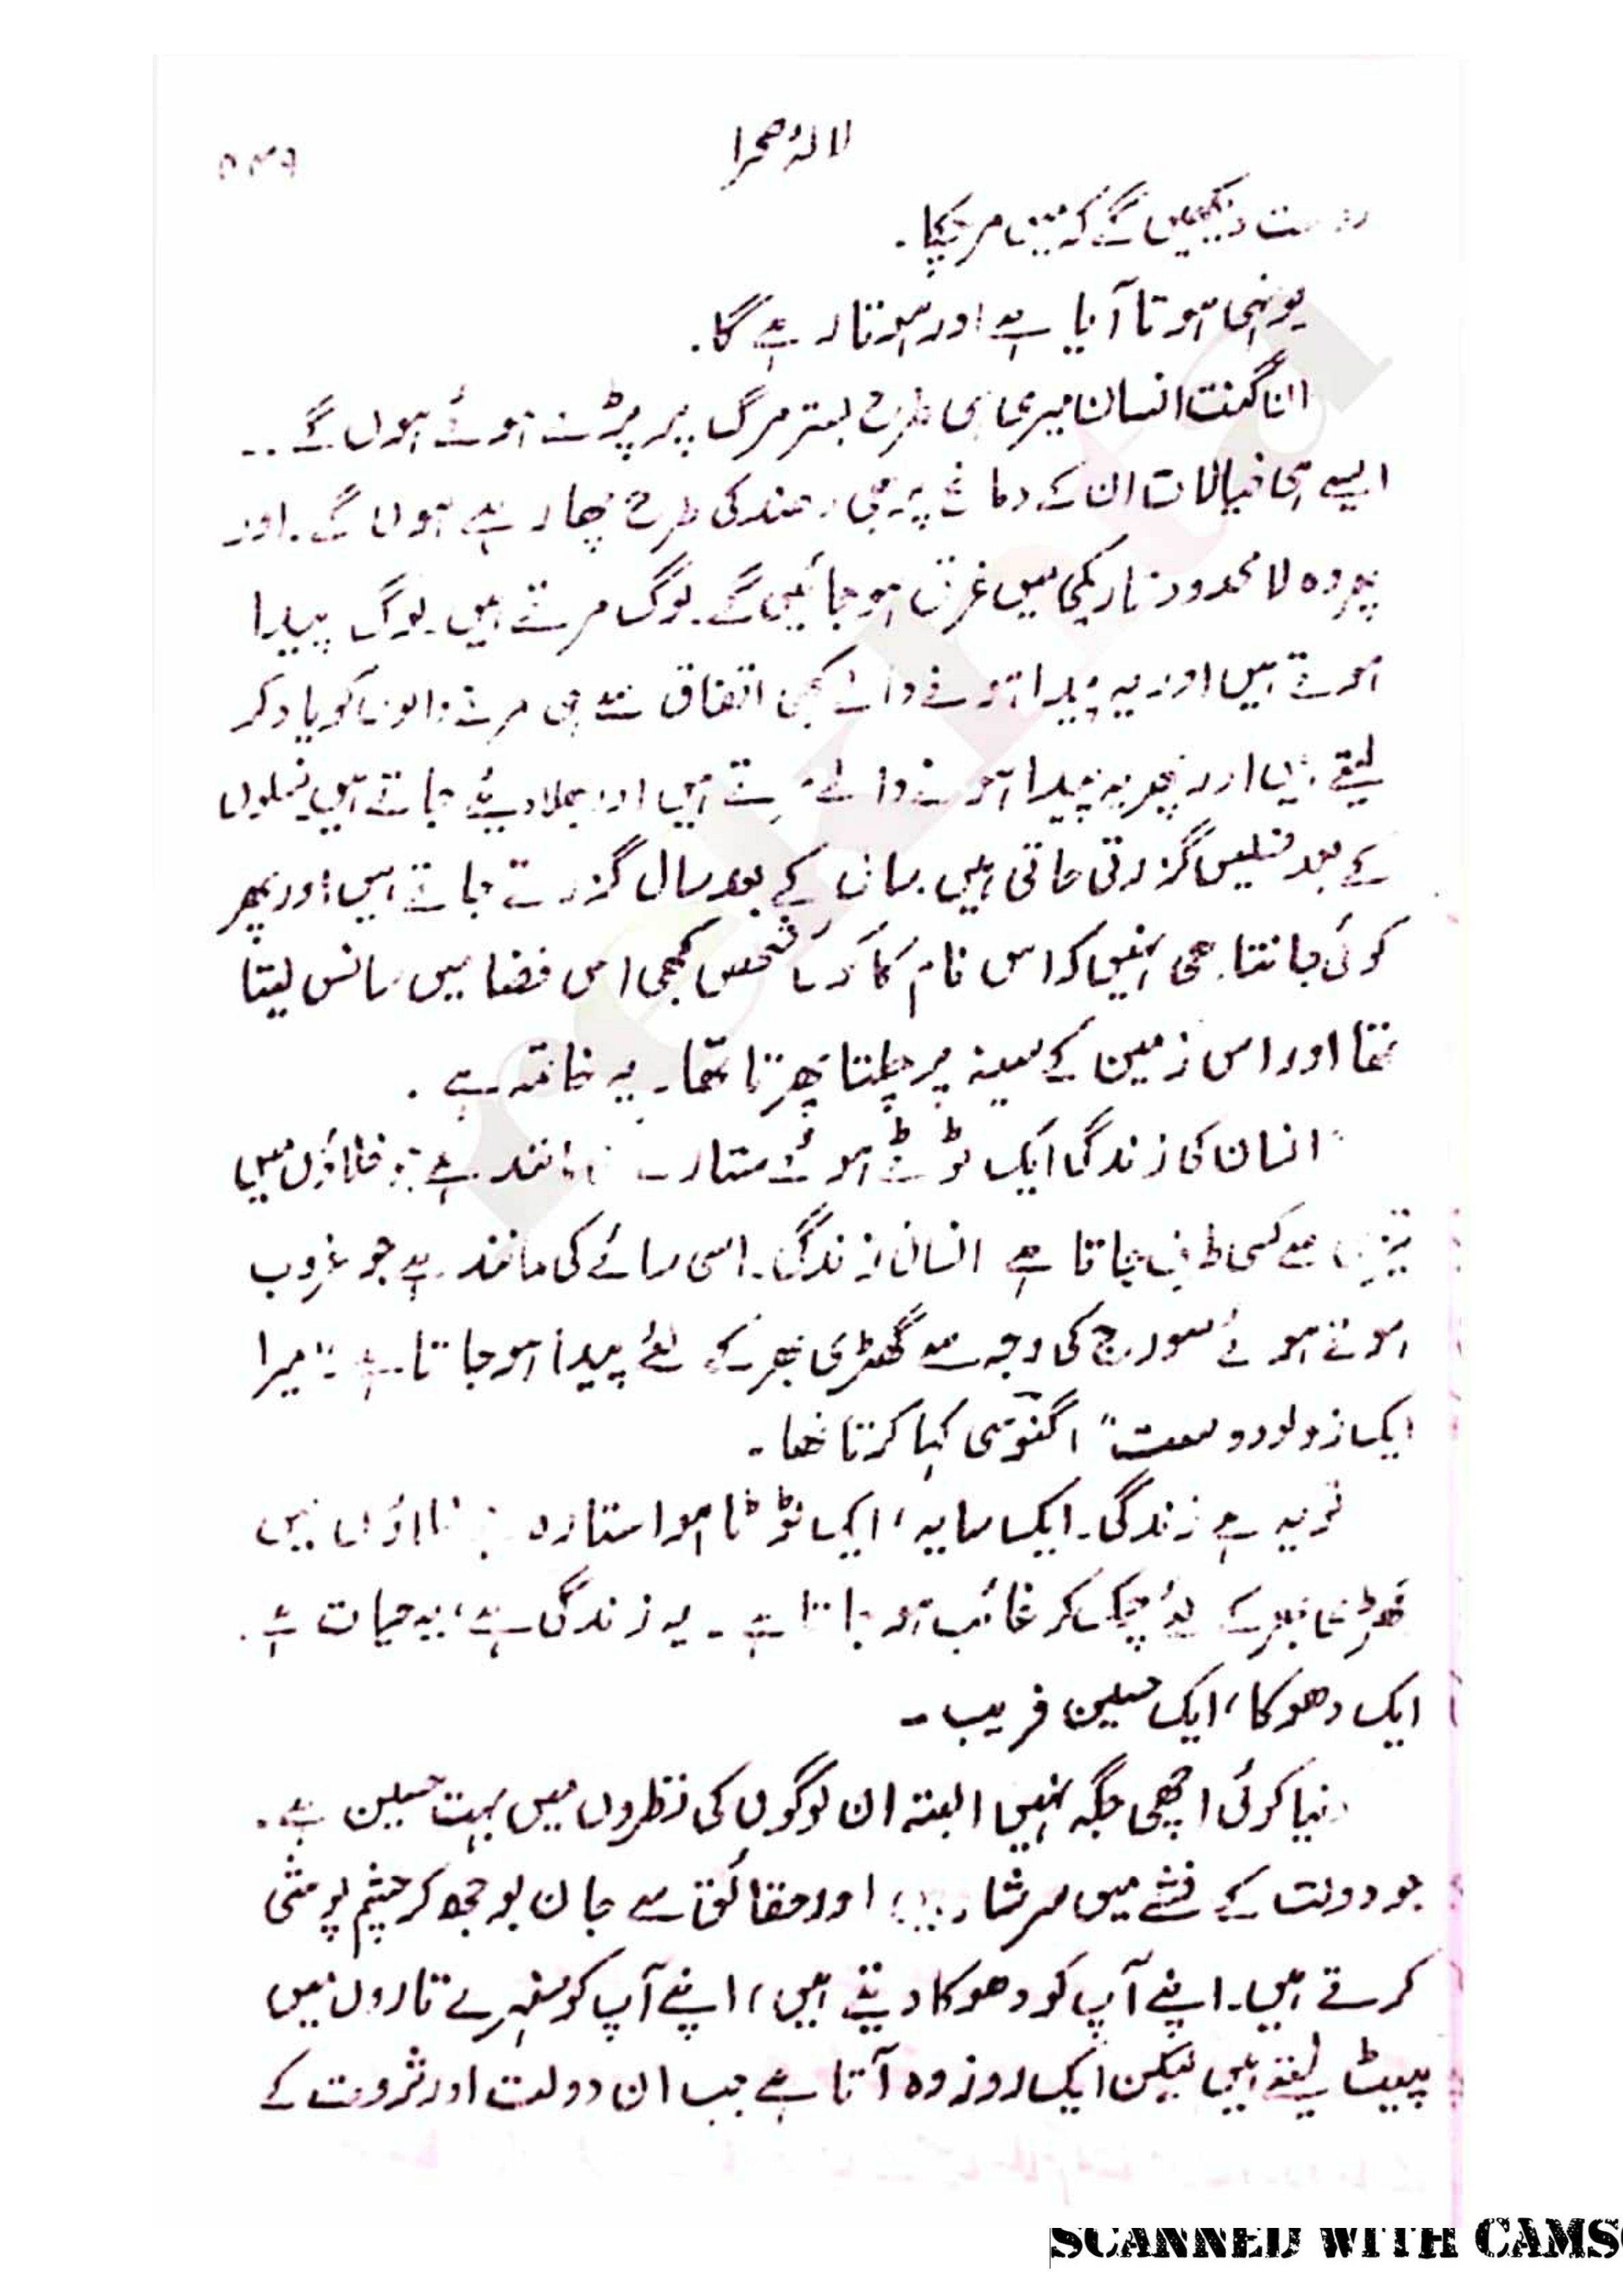 لالۂ صحرا
دوست دیکھیں گے کہ میں مر چکا۔
یونہی ہوتا آیا ہے اور ہوتا رہے گا۔
ان گنت انسان میری ہی طرح بستر مرگ پر پڑے ہوئے ہوں گے ..
ایسے ہی خیالات ان کے دماغ پر بھی دھند کی طرح چھا رہے ہوں گے۔ اور
پھر وہ لا محدود تاریکی میں غرق ہو جائیں گے۔ لوگ مرتے ہیں۔ لوگ پیدا
ہوتے ہیں اور یہ پیدا ہونے والے کبھی اتفاق سے ہی مرنے والوں کو یاد کر
لیتے ہیں اور پھر یہ پیدا ہونے والے مرتے ہیں اور بھلا دیئے جاتے ہیں نسلوں
کے بعد نسلیں گزرتی جاتی ہیں۔ سال کے بعد سال گزرتے جاتے ہیں اور پھر
کوئی جانتا بھی نہیں کہ اس نام کا کوئی شخص کبھی اس فضا میں سانس لیتا
تھا اور اس زمین کے سینہ پر چلتا پھرتا تھا۔ یہ خاتمہ ہے۔
"انسان کی زندگی ایک ٹوٹے ہوئے ستارے مانند ہے جو خلاؤں میں
تیزی سے کسی طرف جاتا ہے انسانی زندگی۔ اسی سائے کی مانند ہے جو غروب
ہوتے ہوئے سورج کی وجہ سے گھڑی بھر کے لئے پیدا ہو جاتا ہے۔" میرا
ایک زولو دوست" اگنوسی کہا کرتا تھا۔
تو یہ ہے زندگی۔ ایک سایہ، ایک ٹوٹتا ہوا ستارہ جو خلاؤں میں
گھڑی بھر کے لئے چمک کر غائب ہو جاتا ہے۔ یہ زندگی ہے، یہ حیات ہے۔
ایک دھوکا، ایک حسین فریب۔
دنیا کوئی اچھی جگہ نہیں البتہ ان لوگوں کی نظروں میں بہت حسین ہے۔
جو دولت کے نشے میں سرشار ہیں، اور حقائق سے جان بوجھ کر چشم پوشی
کرتے ہیں۔ اپنے آپ کو دھوکا دیتے ہیں، اپنے آپ کو سنہرے تاروں میں
لپیٹ لیتے ہیں لیکن ایک روز وہ آتا ہے جب ان دولت اور ثروت کے
rekhta
SCANNED WITH CAMS